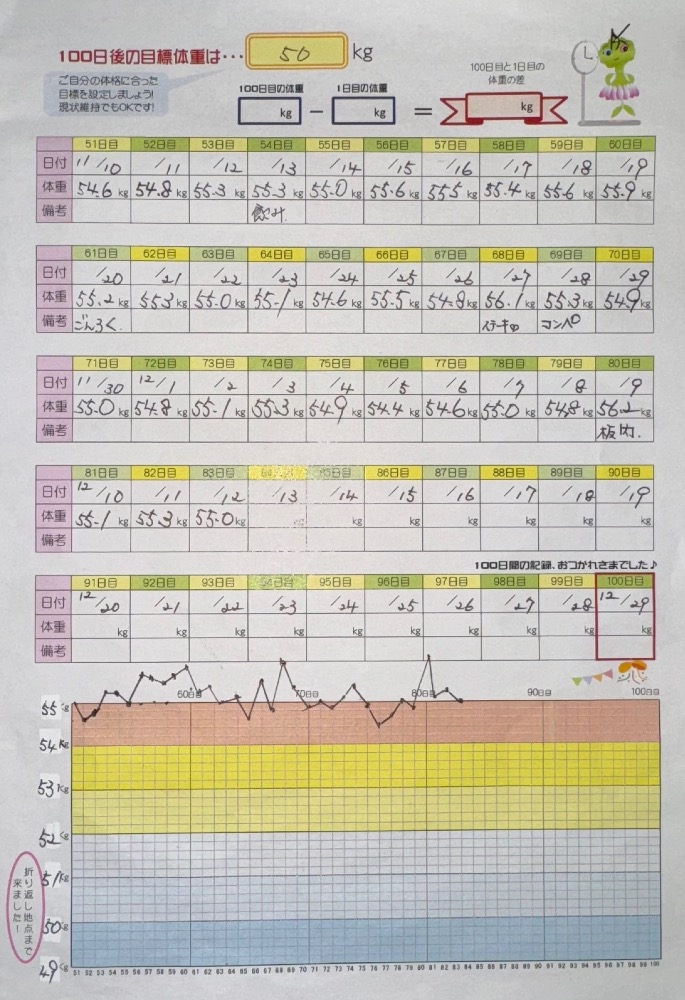 100日後の目標体重は・・・ 50 kg
ご自分の体格に合った
目標を設定しましょう!
現状維持でもOKです!
100日目の体重 1日目の体重
kg − kg = kg
100日目と1日目の
体重の差
51日目 52日目 53日目 54日目 55日目 56日目 57日目 58日目 59日目 60日目
日付 11/10 /11 /12 /13 /14 /15 /16 /17 /18 /19
体重 54.6 kg 54.8 kg 55.3 kg 55.3 kg 55.0 kg 55.6 kg 55.5 kg 55.4 kg 55.6 kg 55.9 kg
備考 飲み
61日目 62日目 63日目 64日目 65日目 66日目 67日目 68日目 69日目 70日目
日付 /20 /21 /22 /23 /24 /25 /26 /27 /28 /29
体重 55.2 kg 55.3 kg 55.0 kg 55.1 kg 54.6 kg 55.5 kg 54.8 kg 56.1 kg 55.3 kg 54.9 kg
備考 ごんろく. コンペ
71日目 72日目 73日目 74日目 75日目 76日目 77日目 78日目 79日目 80日目
日付 11/30 12/1 /2 /3 /4 /5 /6 /7 /8 /9
体重 55.0 kg 54.8 kg 55.1 kg 55.3 kg 54.9 kg 54.4 kg 54.6 kg 55.0 kg 54.8 kg 56.2 kg
備考
81日目 82日目 83日目 84日目 85日目 86日目 87日目 88日目 89日目 90日目
日付 12/10 /11 /12 /13 /14 /15 /16 /17 /18 /19
体重 55.1 kg 55.3 kg 55.0 kg kg kg kg kg kg kg
備考
100日間の記録、おつかれさまでした♪
91日目 92日目 93日目 94日目 95日目 96日目 97日目 98日目 99日目 100日目
日付 12/20 /21 /22 /23 /24 /25 /26 /27 /28 12/29
体重 kg kg kg kg kg kg kg kg kg kg
備考
60日目 70日目 80日目 90日目 100日目
55kg
54kg
53kg
52kg
51kg
50kg
49kg
折り返し地点まで
来ました!
51 52 53 54 55 56 57 58 59 60 61 62 63 64 65 66 67 68 69 70 71 72 73 74 75 76 77 78 79 80 81 82 83 84 85 86 87 88 89 90 91 92 93 94 95 96 97 98 99 100